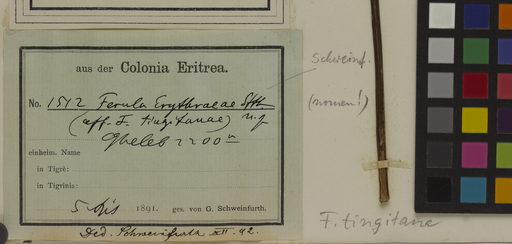 aus der Colonia Eritrea.
No. 1512 Ferula Erythraeae Sfth
(aff. F. tingitanae) n. sp
Gheleb 2200 m
einheim. Name
in Tigrè:
in Tigrinis:
5 1891. ges. von G. Schweinfurth.
Ded. Schweinfurth XII. 92.
Schweinf.
(nomen!)
F. tingitana